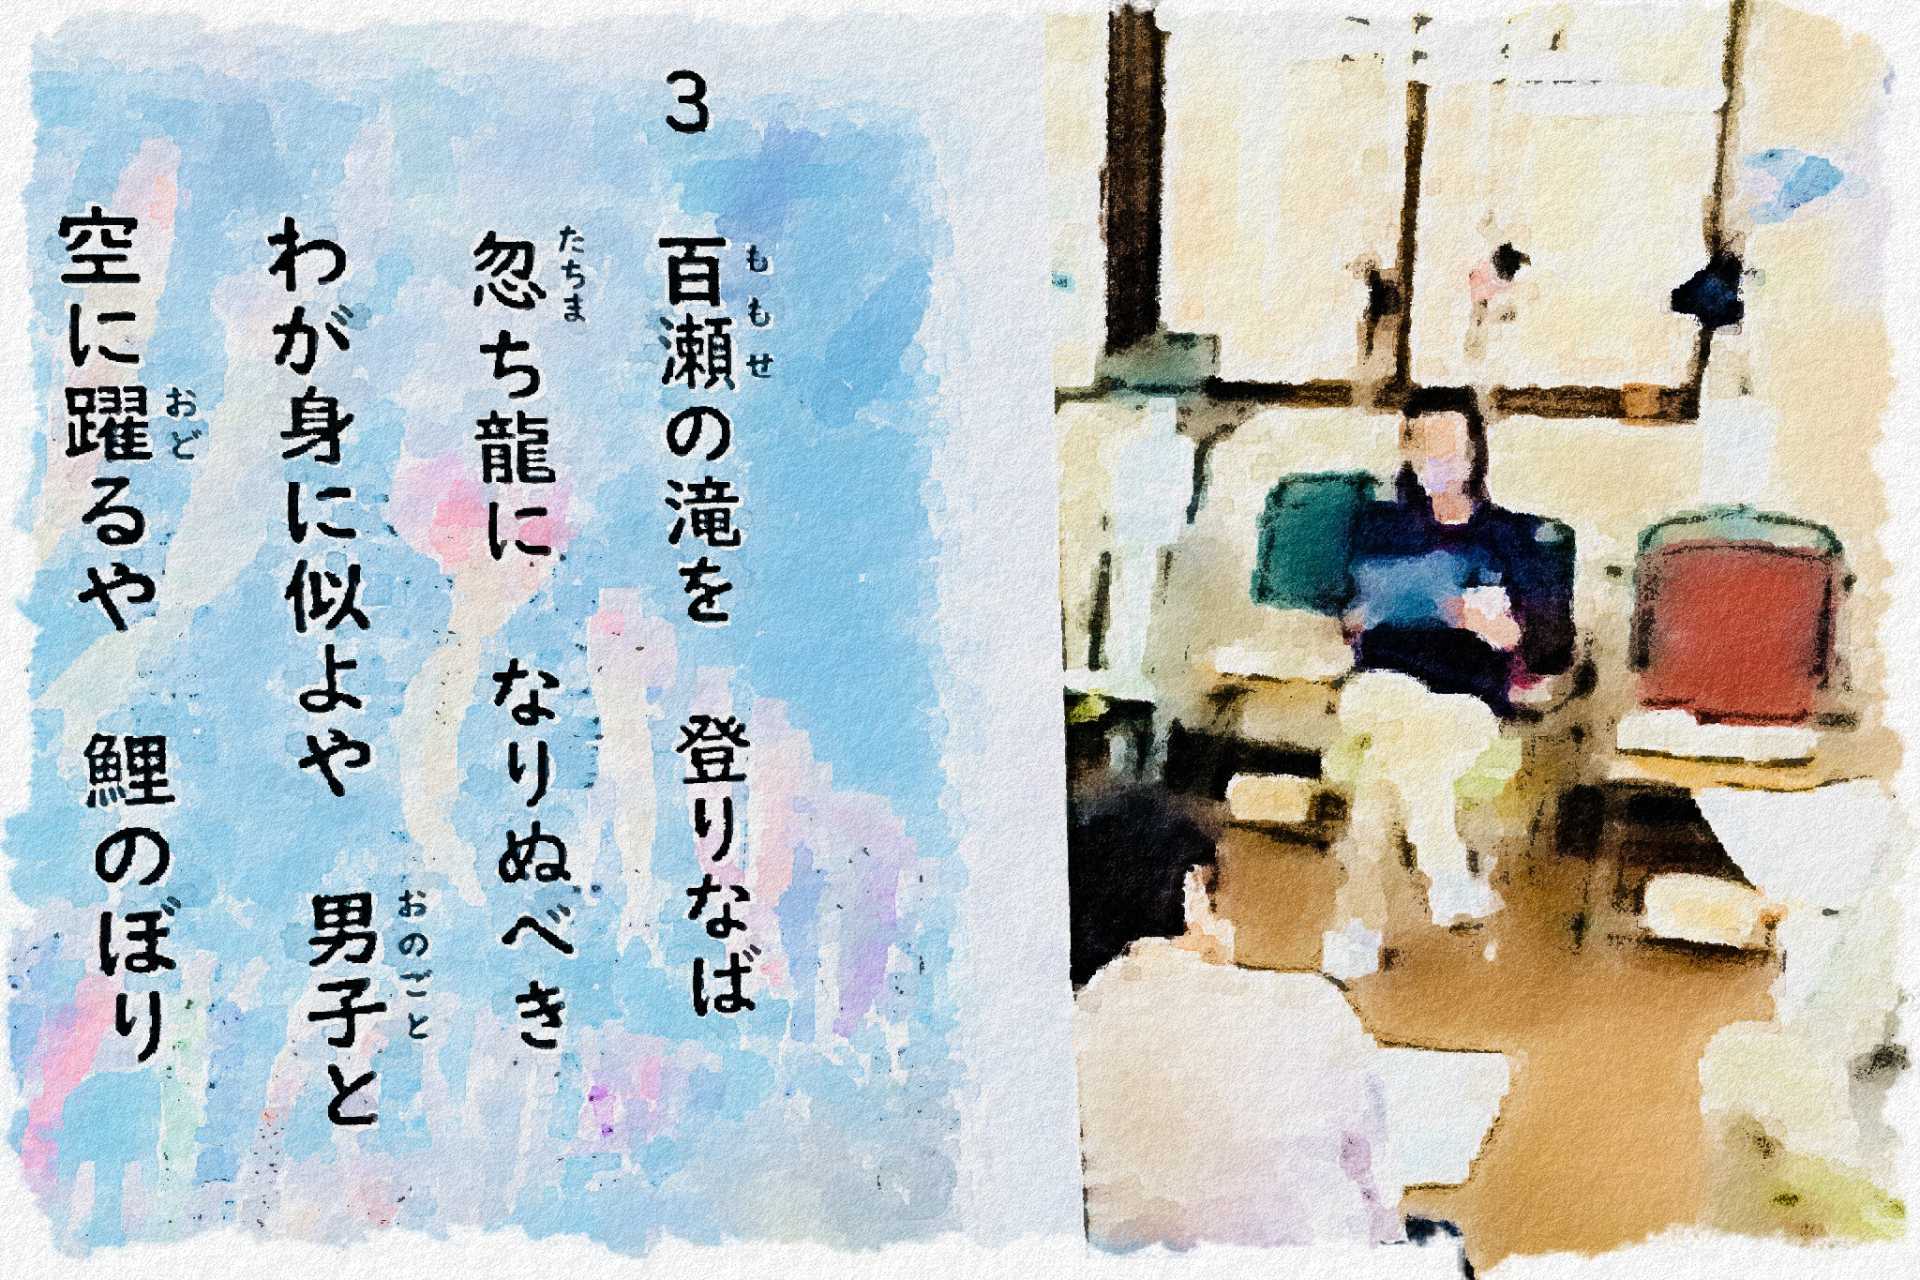 3
百瀬の滝を 登りなば
ももせ
忽ち龍に なりぬべき
たちま
わが身に似よや 男子と
おのごと
空に躍るや 鯉のぼり
おど